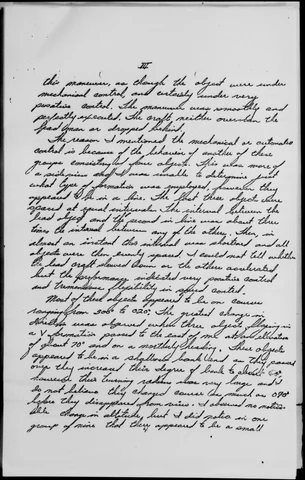 III
this maneuver, as though the objects were under
mechanical control, and certainly under very
positive control. The maneuver was smoothly and
perfectly executed. The craft neither overran the
lead man or dropped behind.
The reason I mentioned the mechanical or automatic
control is because of the behavior of another of these
groups consisting of four objects. This was more of
a side view and I was unable to determine just
what type of formation was employed, however they
appeared to be in a line. The last three objects were
spaced at equal intervals. The interval between the
lead object and the second in line was about three
times the interval between any of the others. Then, in
almost an instant this interval was shortened and all
objects were then evenly spaced. I could not tell whether
the lead craft slowed down or the others accelerated
but the performance indicated very positive control
and tremendous flexibility in speed control.
Most of these objects appeared to be on courses
ranging from to 020°. The greatest change in
direction was observed when three objects flying in
a V formation passed to the east of me at an elevation
of about 70° and on a northerly heading. These objects
appeared to be in a shallow bank and as they passed
over they increased their degree of bank to about
however their turning radius was very large and I
do not believe they changed course as much as 090°
before they disappeared from view. I observed no notice-
able change in altitude, but I did notice in one
group of nine that they appeared to be a small